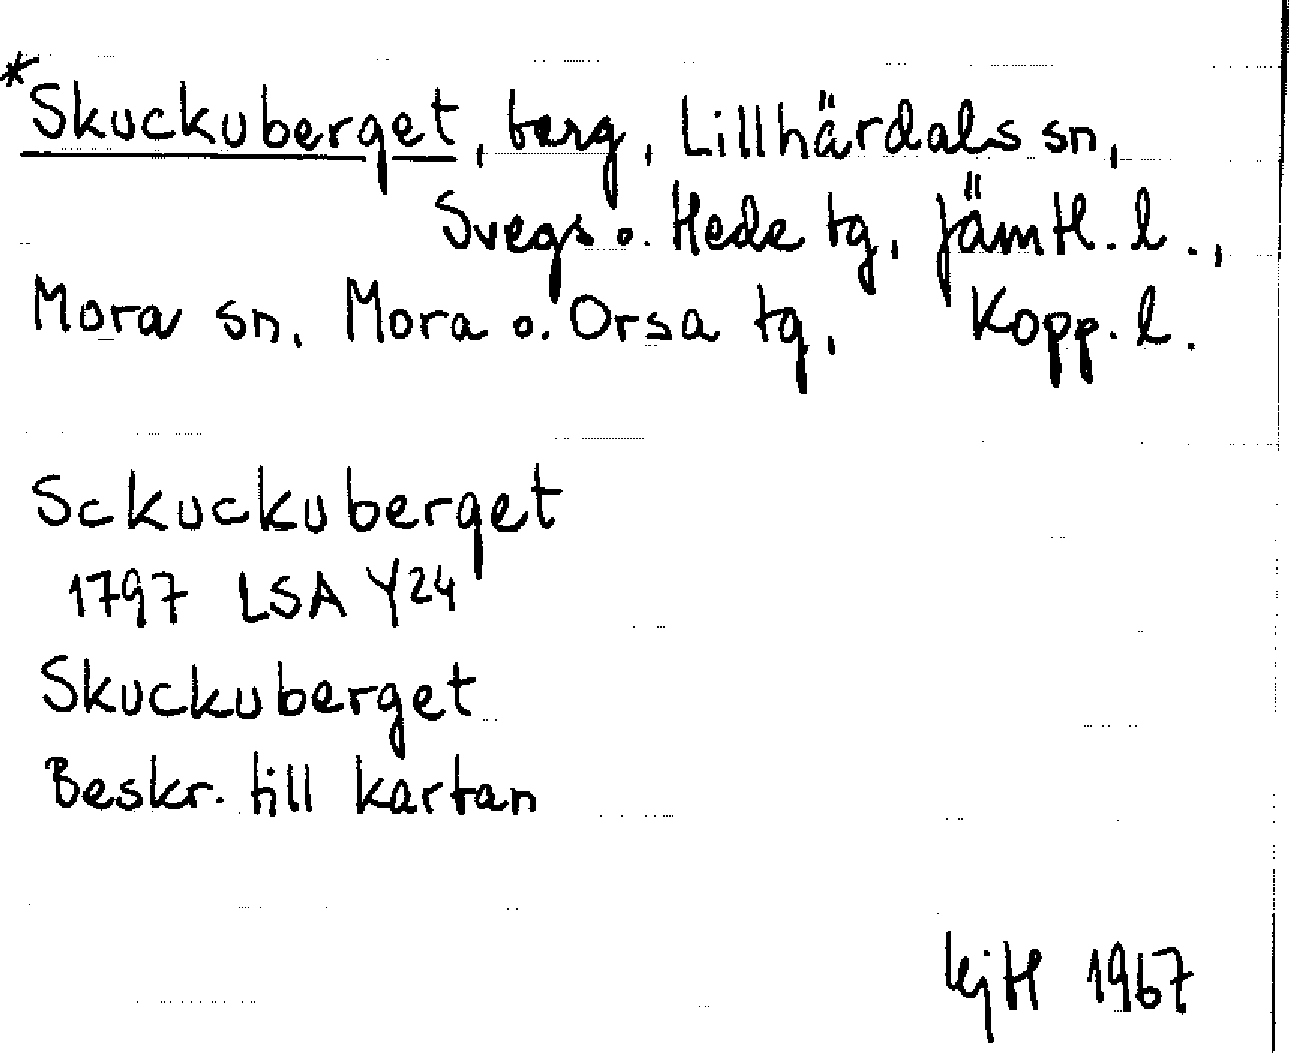 *Skuckuberget, berg, Lillhärdals sn,
Svegs o. Hede tg, Jämtl. l.,
Mora sn, Mora o. Orsa tg, Kopp. l.
Sckuckuberget
1797 LSA Y24
Skuckuberget
Beskr. till kartan
KjH 1967